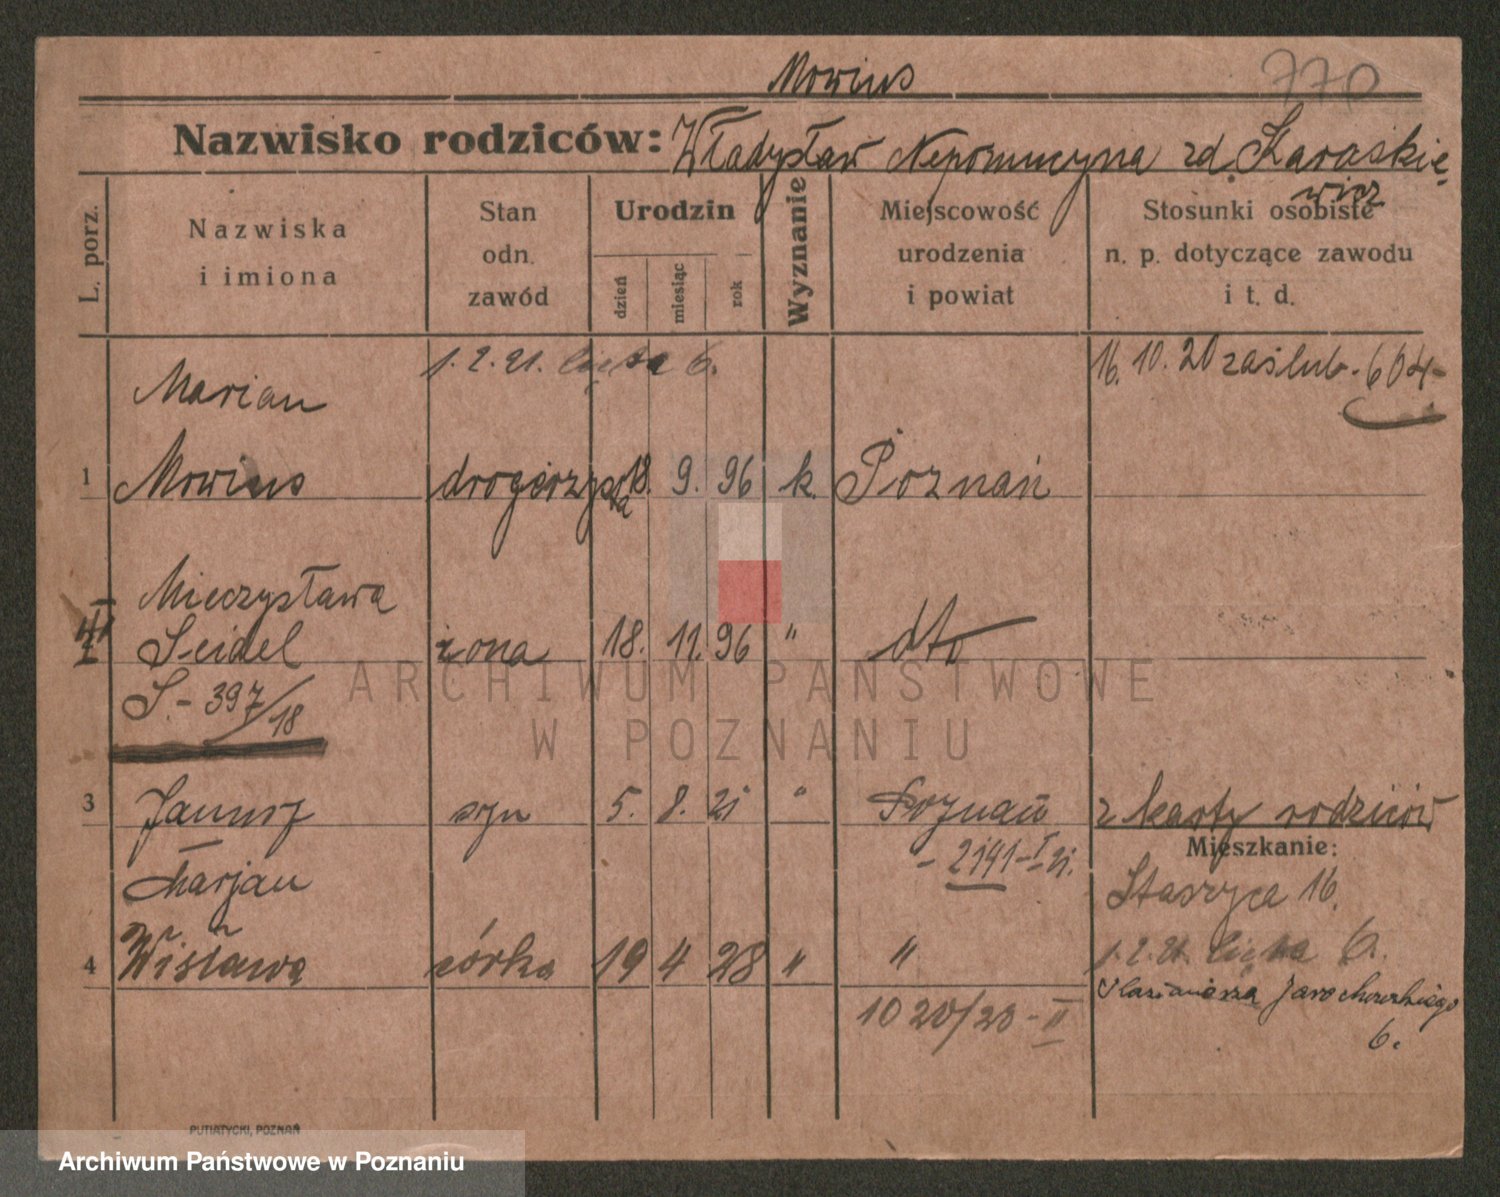 Mowius
770
Nazwisko rodziców: Władysław Nepomucyna zd. Karaskie-
wicz
L. porz.
Nazwiska i imiona
Stan odn. zawód
Urodzin
dzień miesiąc rok
Wyznanie
Miejscowość urodzenia i powiat
Stosunki osobiste n. p. dotyczące zawodu i t. d.
1. 2. 21. 6.
16. 10. 20 zaślub. 604
Marian
1 Mowius drogerzysta 18. 9. 96 k. Poznań
Mieczysława
II Seidel żona 18. 11. 96 " dto
S. - 397/18
3 Janusz syn 5. 8. 21 " Poznań z karty rodziców
- 2141-I-21.
Mieszkanie:
Marjan
Staszyca 16.
4 Wisława córka 19 4 28 " " 1. 2. 21. 6.
Jarochowskiego
1020/28-II
6.
PUTIATYCKI, POZNAŃ
ARCHIWUM PAŃSTWOWE
W POZNANIU
Archiwum Państwowe w Poznaniu